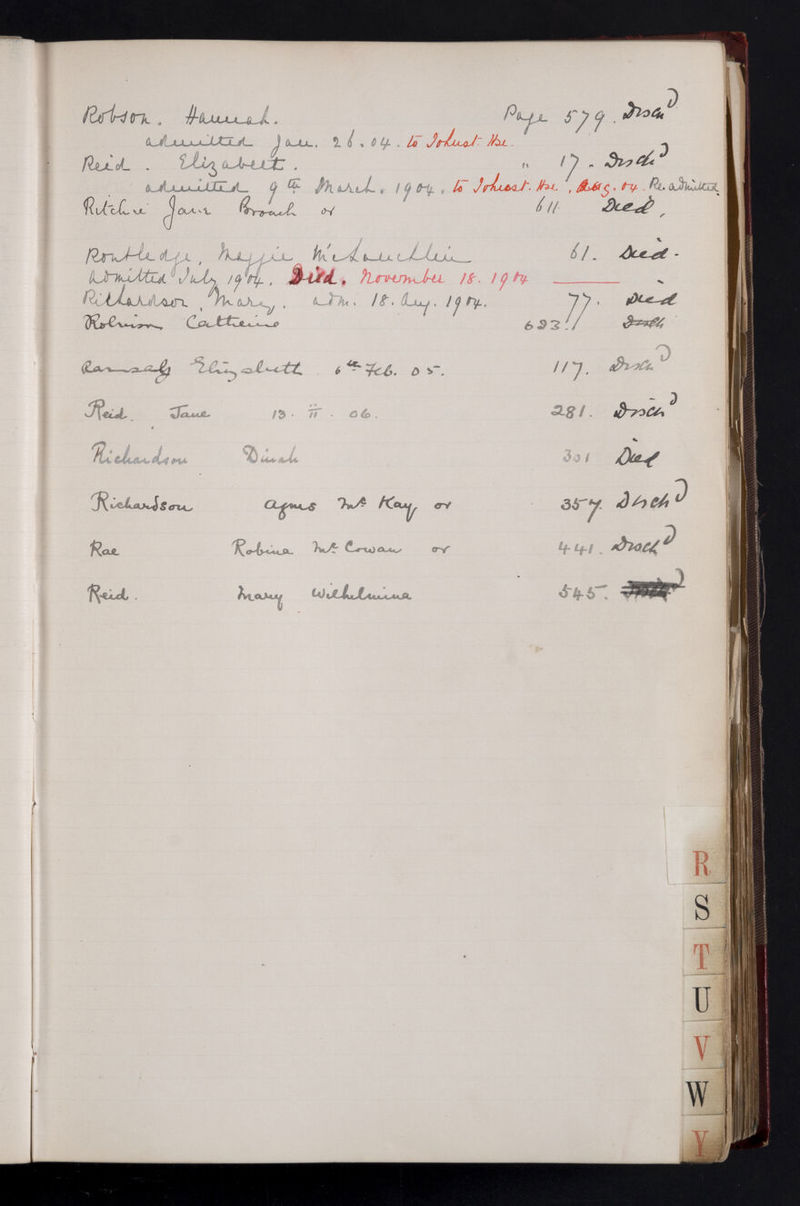 Robson. Hannah. Page 579. Disch^D
admitted Jan. 26.04. to Johnst. Hse.
Reid. Elizabeth. " 17. Disch^D
admitted 9th March. 1904. to Johnst. Hse., Aug. 04. Re. admitted
Ritchie Jane Broach or 611 Died,
Routledge, Maggie McLauchlin 61. Died.
Admitted July 1904. Died. November 18. 1904
Richardson, Mary. adm. 18. Aug. 1904. 77. Died
Robinson Catherine 623. Disch
Ramsay Elizabeth 6th Feb. 05. 117. Disch^D
Reid. Jane 13. II. 06. 281. Disch^D
Richardson Dinah 301 Died
Richardson Agnes McKay or 357. Disch^D
Rae Robina McCowan or 441. Disch^D
Reid. Mary Wilhelmina 545.
R
S
T
U
V
W
Y